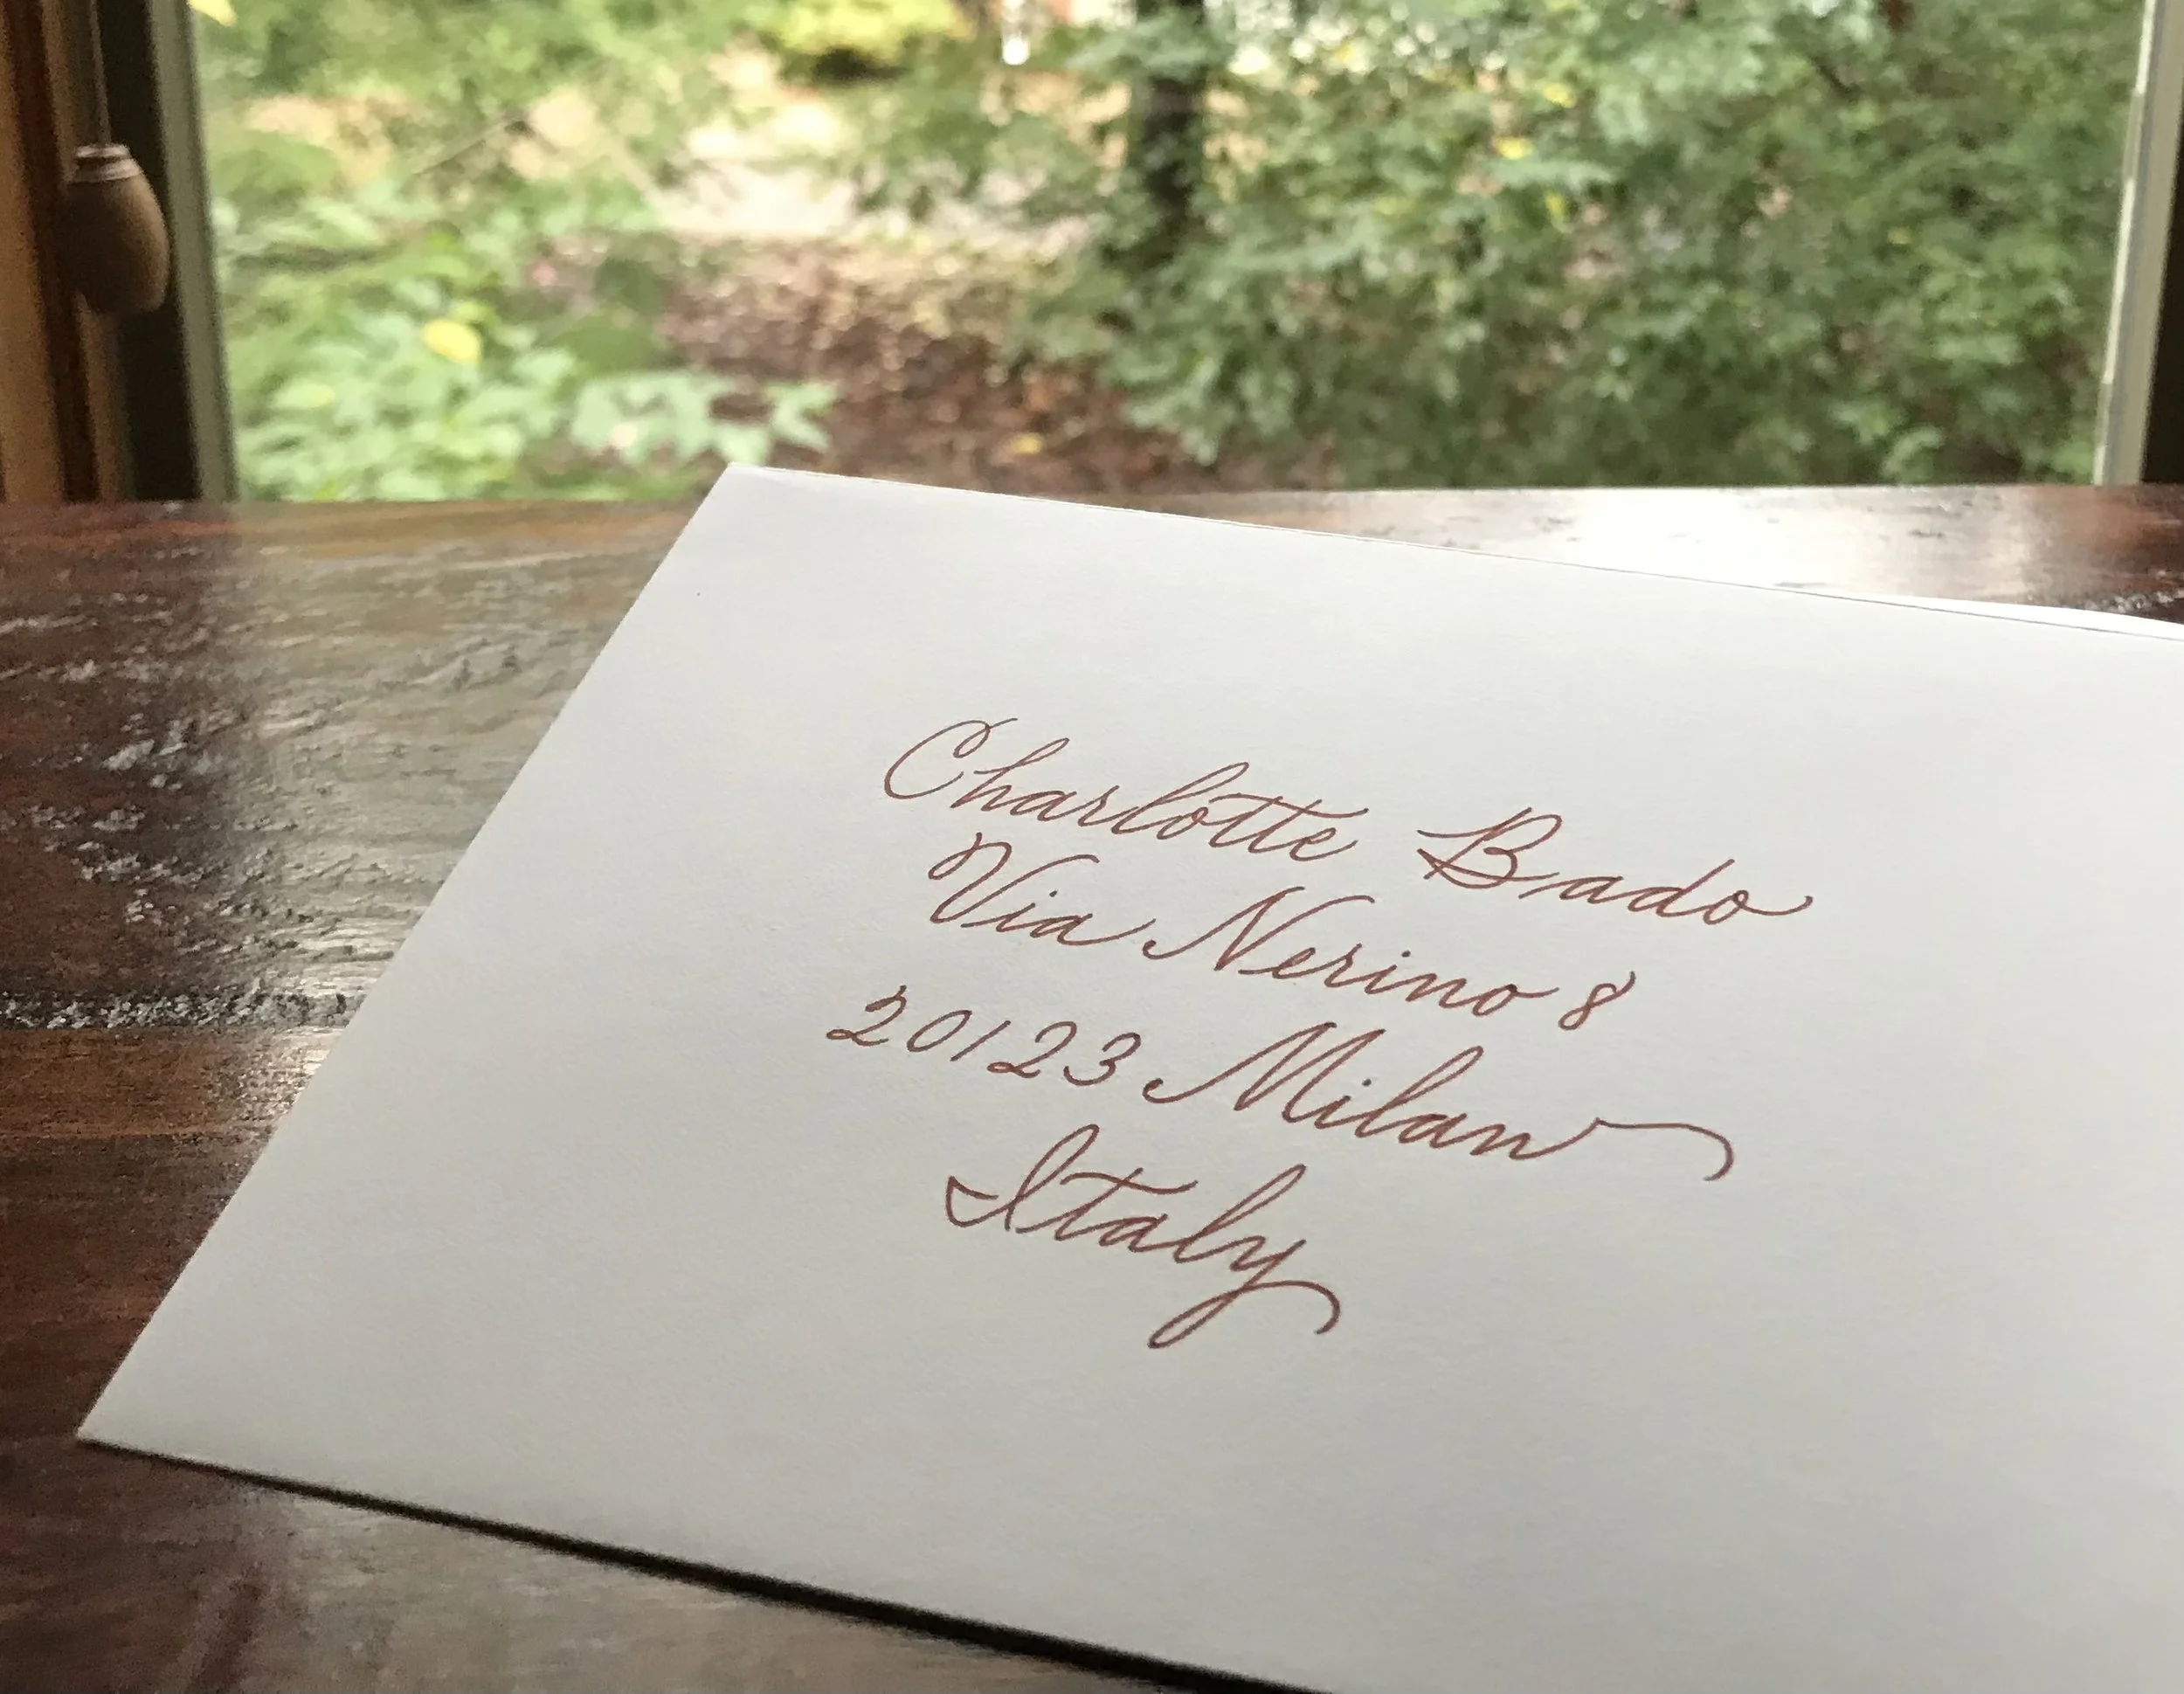 Charlotte Bado
Via Nerino 8
20123 Milan
Italy